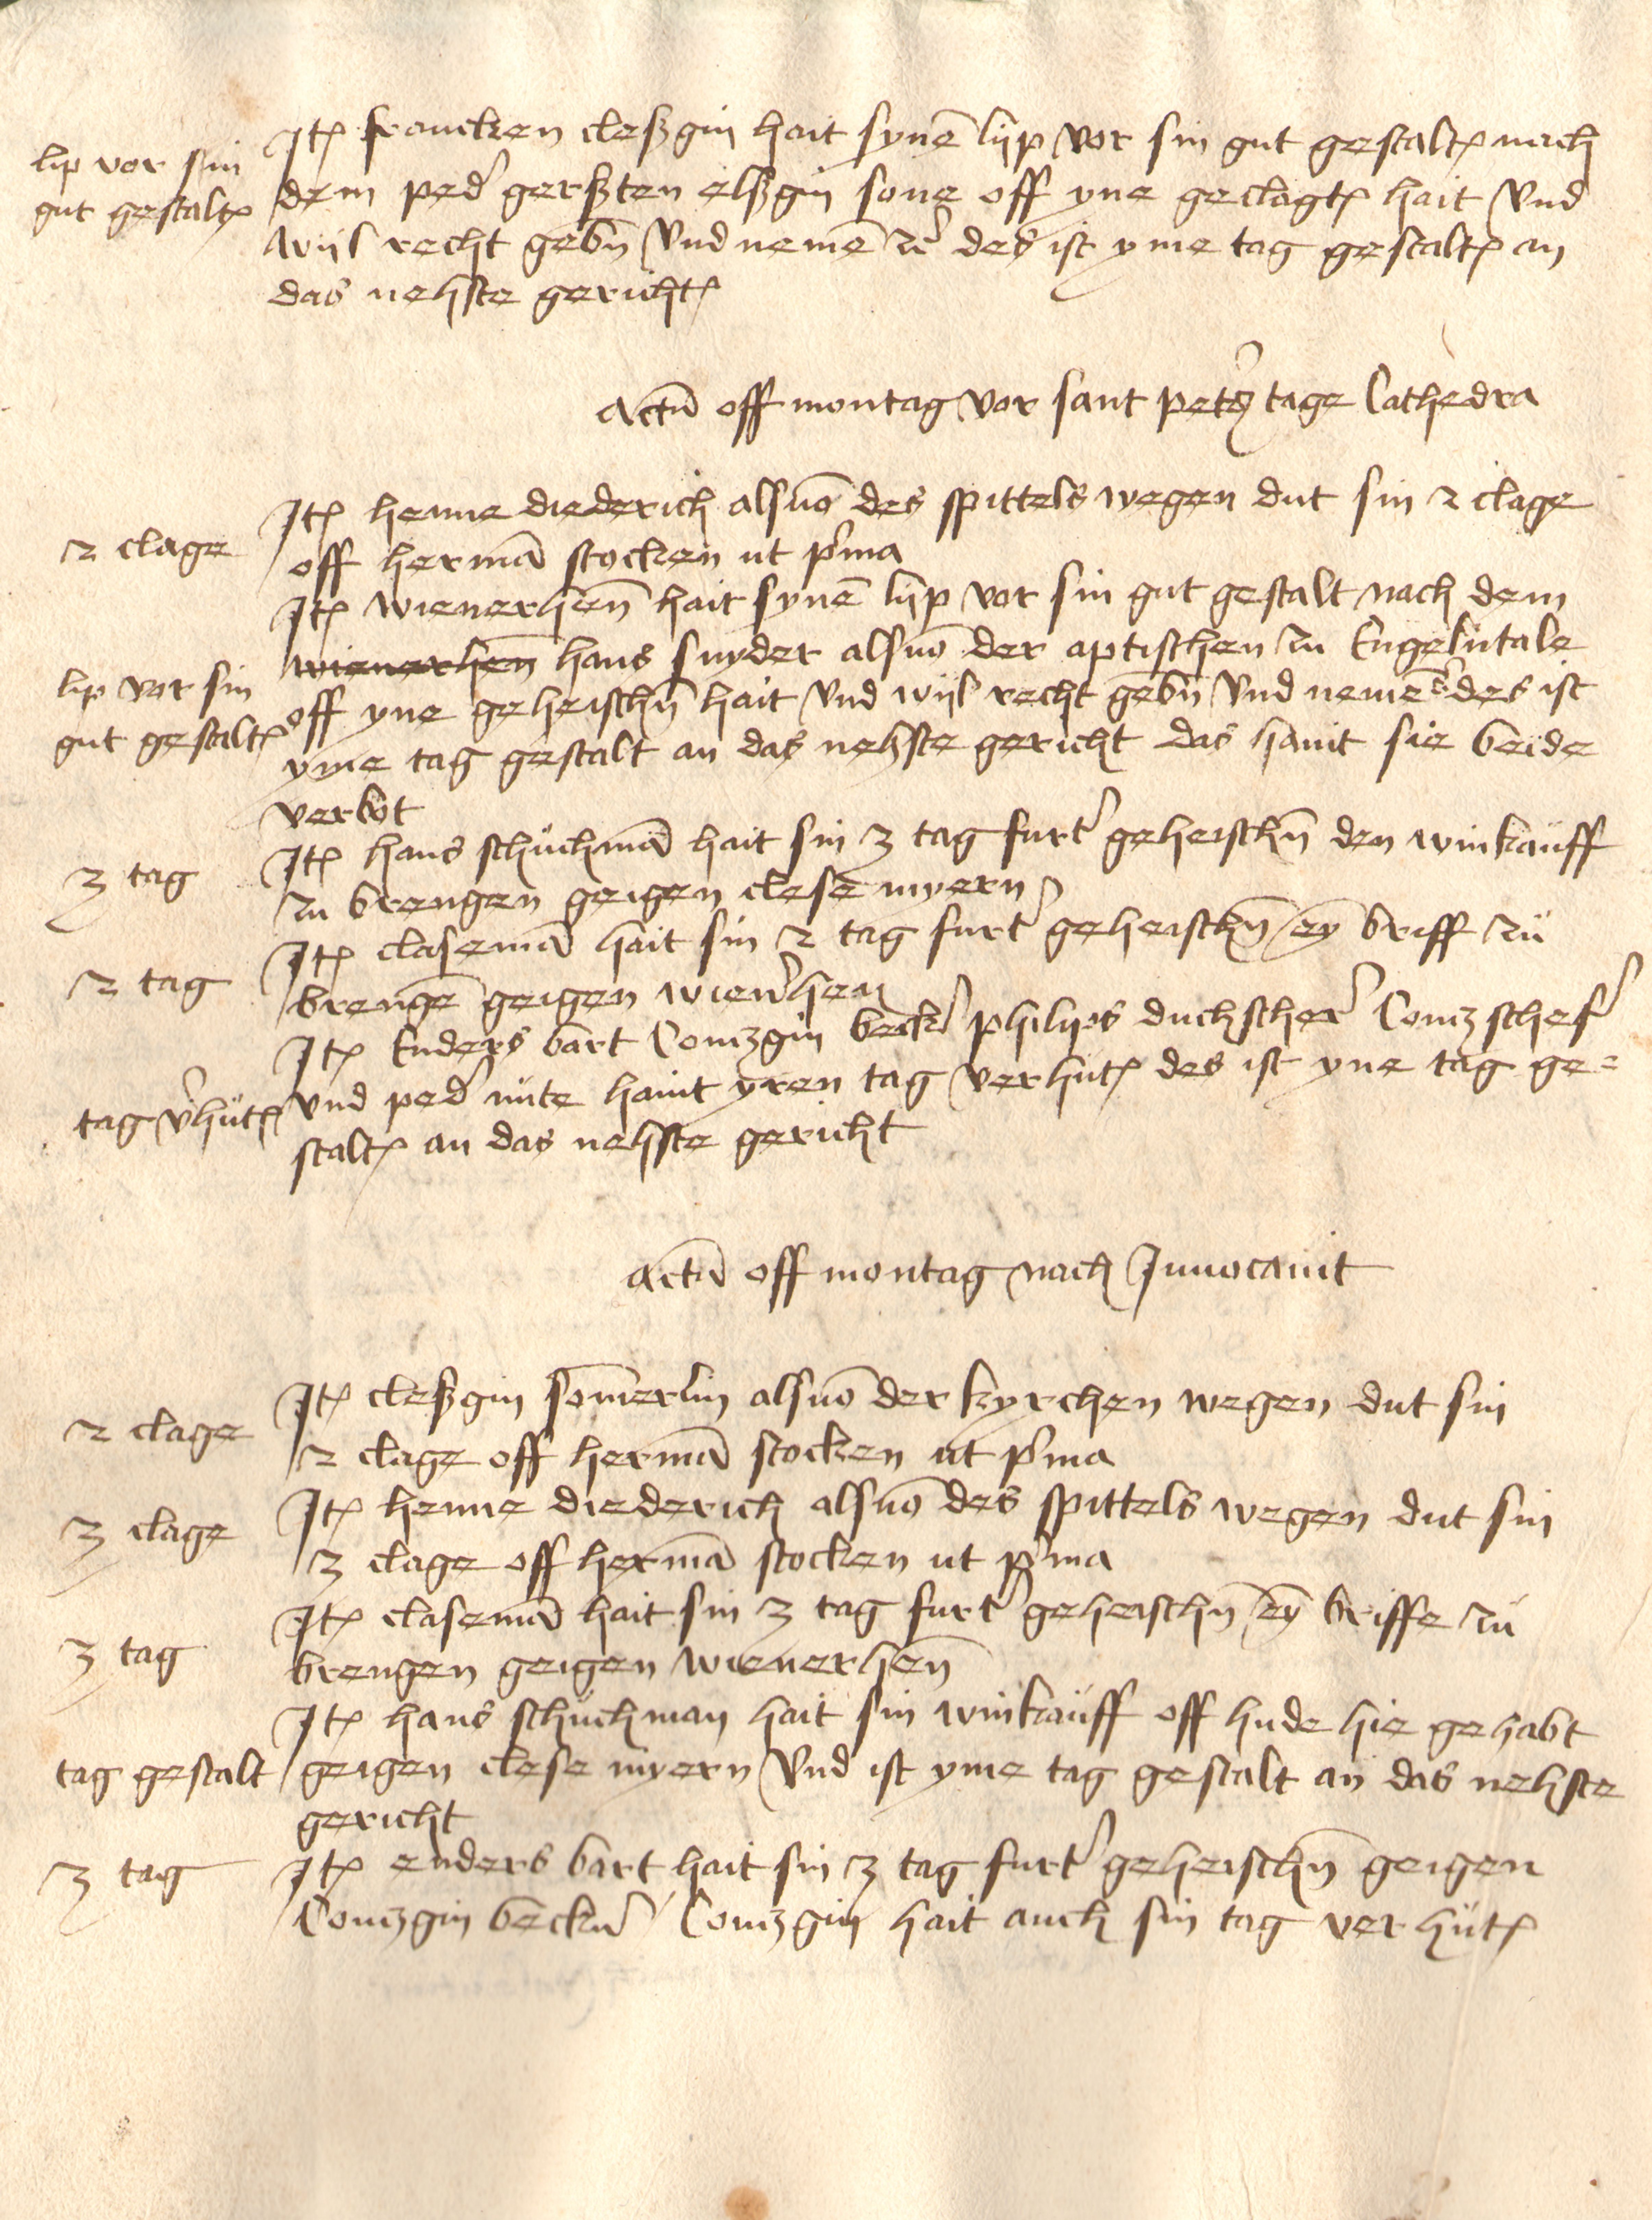 lip vor sin
gut gestalt
Jt francken cleßgin hait synē lijp vor sin gut gestalt nach
dem ped' gerßten elßgin sone off yne geclagt hait Vnd
wijl recht gebñ Vnd nemē rc des ist yme tag gestalt an
das nehste gericht
Actū off montag vor sant peters tage Cathedra
2 clage
Jt henne diederich alsuō des spittels wegen dut sin 2 clage
off hermā stocken ut p'ma
Jt wienerhēn hait synē lijp vor sin gut gestalt nach dem
lip vor sin
gut gestalt
wienerhen hans snyder alsuō der aptischen zu Engelntale
off yne geheischñ hait Vnd wijl recht gebñ Vnd nemē rc des ist
yme tag gestalt an das nehste gericht das hanit sie beide
verbot
3 tag
Jt hans schuchmā hait sin 3 tag furt' geheischñ den winkauff
zu brengen geigen clese myern
2 tag
Jt clasemā hait sin 2 tag furt' geheischñ eȳ briff zü
brengē geigen wien'hen
tag v'hüt
Jt Enders bart Contzgin beck' philips duchscher' Contz schef'
Vnd ped' nüte hanit yren tag verhut des ist yne tag ge=
stalt an das nehste gericht
Actū off montag nach Jnuocauit
2 clage
Jt cleßgin somerlin alsuō der kyrchen wegen dut sin
2 clage off hermā stocken ut p'ma
3 clage
Jt henne diederich alsuō des spittels wegen dut sin
3 clage off hermā stocken ut p'ma
3 tag
Jt clasemā hait sin 3 tag furt' geheischñ eȳ briffe zu
brengen geigen wienerhēn
Jt hans schuchman hait sin winkauff off hude hie gehabt
tag gestalt
geigen clese myern Vnd ist yme tag gestalt an das nehste
gericht
3 tag
Jt enders bart hait sin 3 tag furt' geheischñ geigen
Contzgin beck' Contzgin hait auch sin tag verhüt